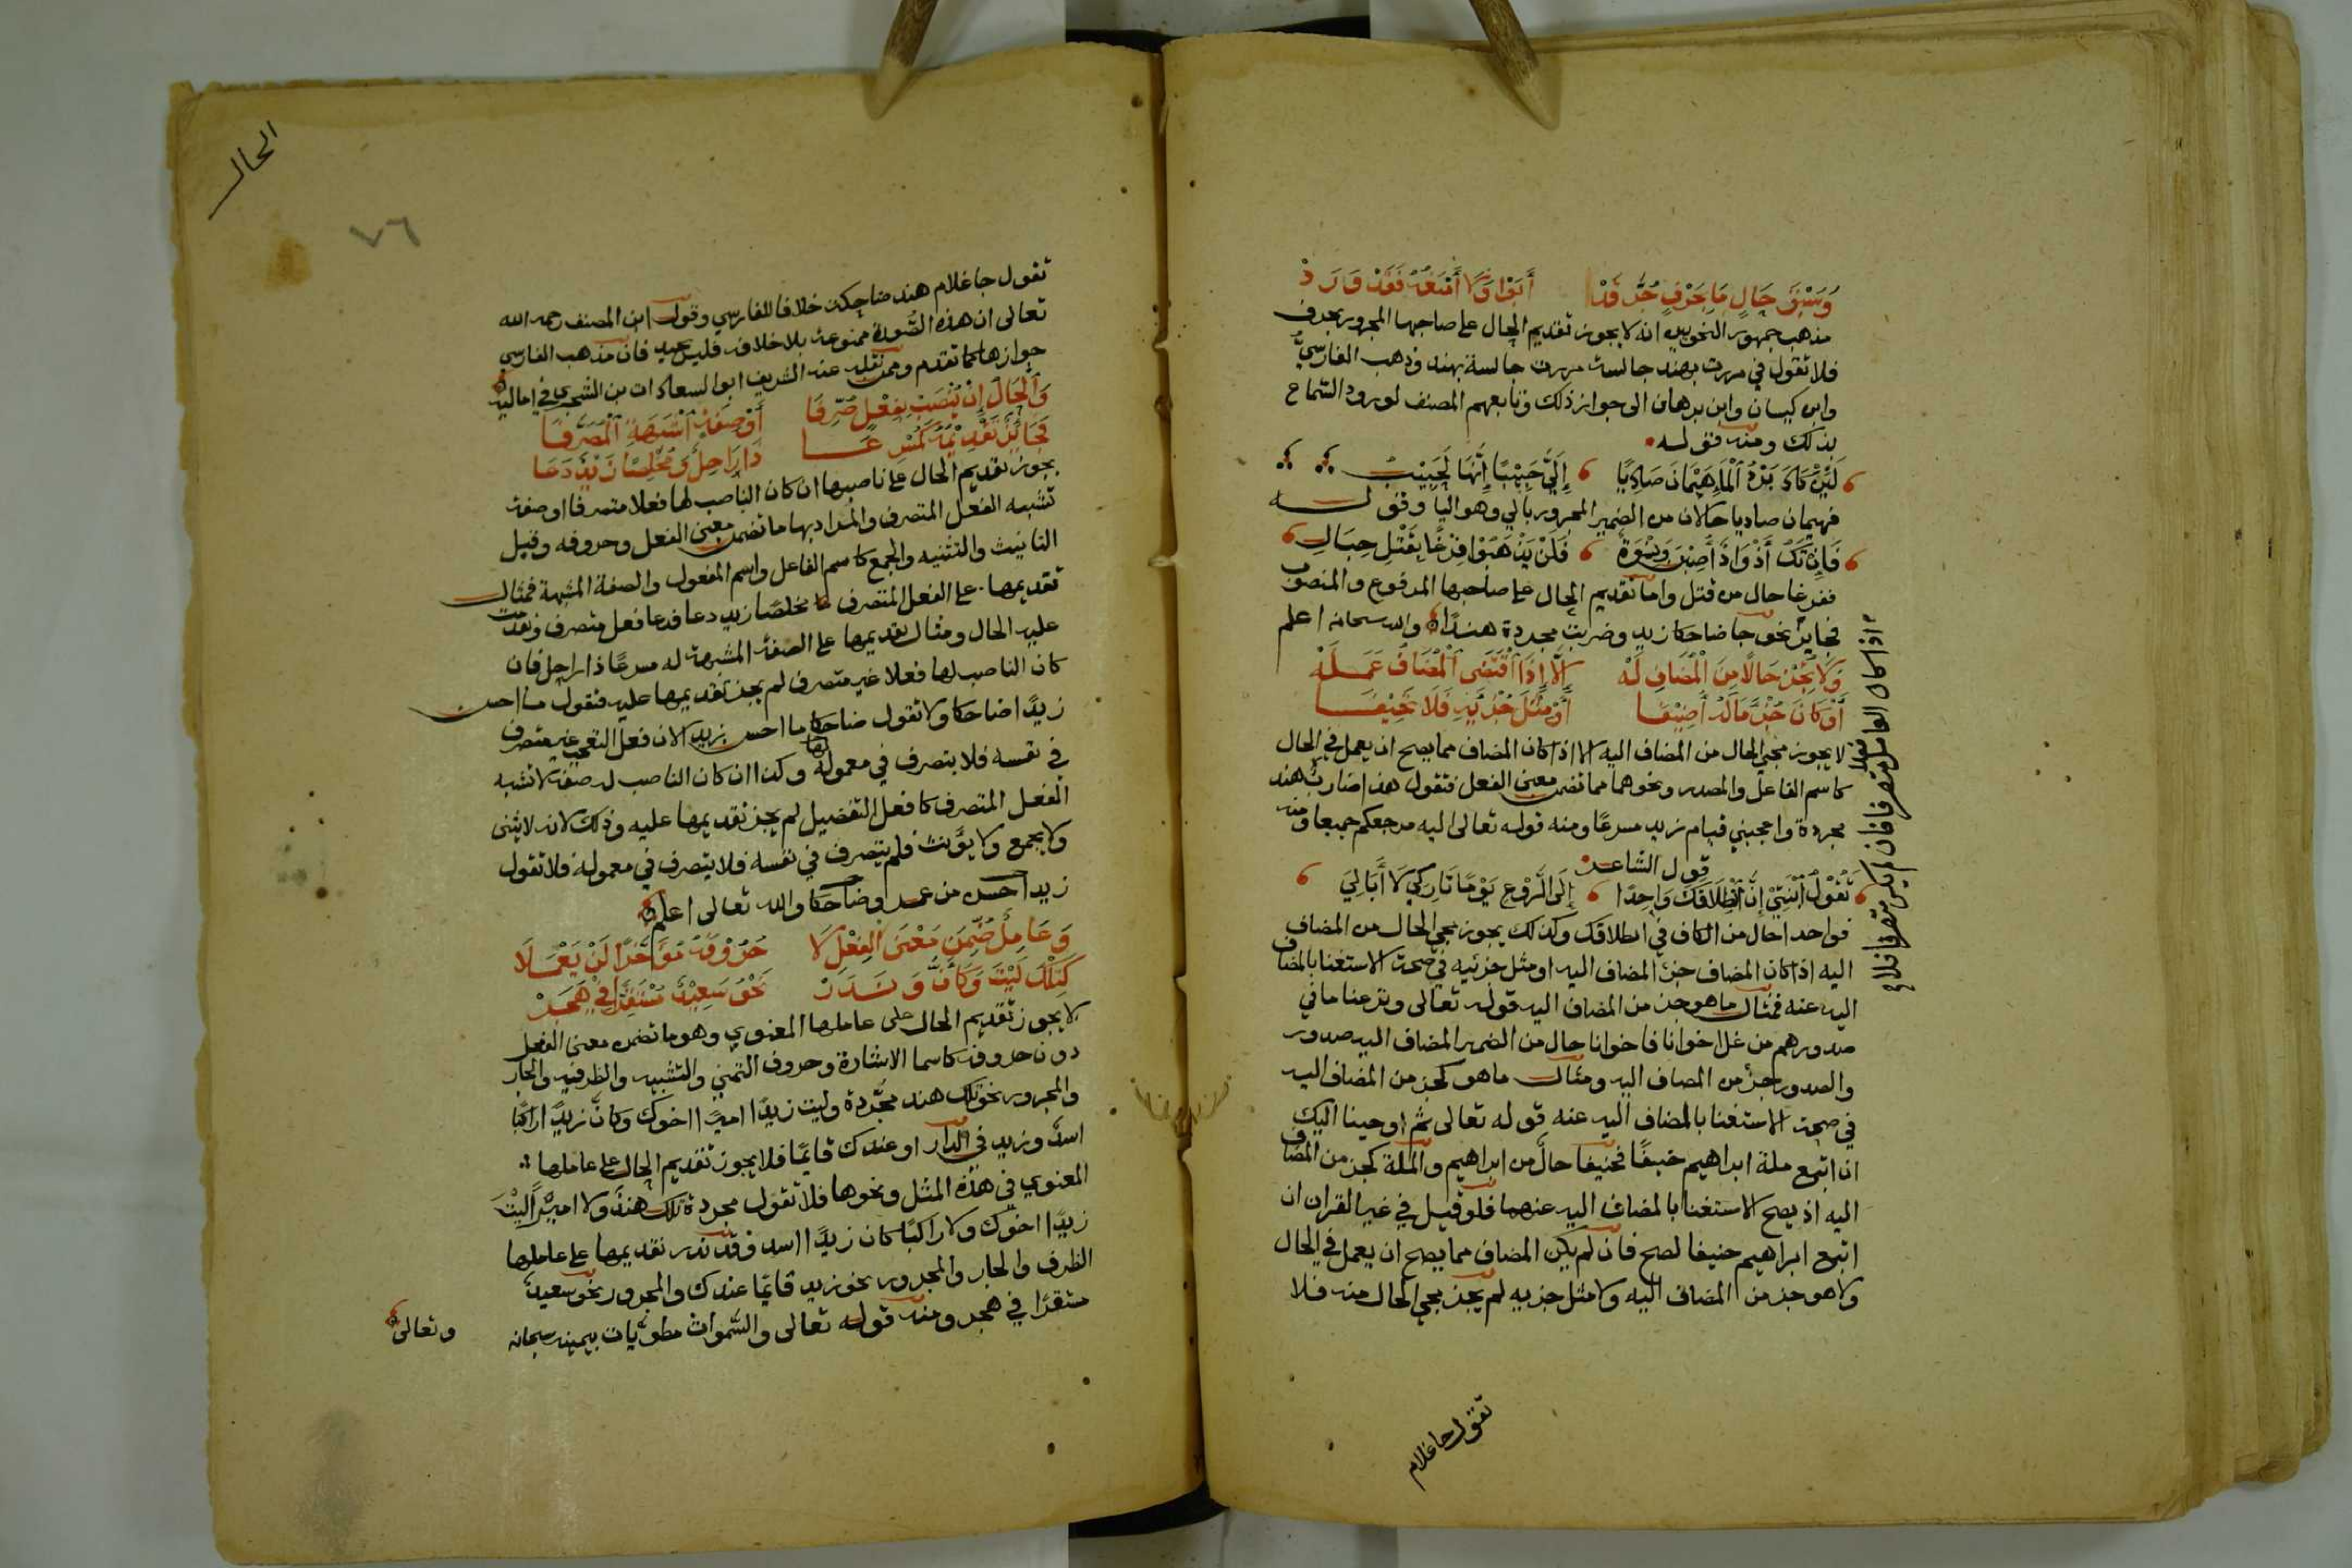 وَسَبْقَ حَالٍ مَا بِحَرْفٍ جُرَّ قَدْ أَبَوْا وَلَا أَمْنَعُهُ فَقَدْ وَرَدْ
مذهب جمهور النحويين انه لا يجوز تقديم الحال على صاحبها المجرور بحرف
فلا تقول في مررت بهند جالسة مررت جالسة بهند وذهب الفارسيُّ
وابن كيسان وابن برهان الى جواز ذلك وتابعهم المصنف لورود السماع
بذلك ومنه قوله
لَئِنْ كَانَ بَرْدُ الْمَاءِ هَيْمَانَ صَادِيًا إِلَيَّ حَبِيْبًا إِنَّهَا لَحَبِيْبُ
فهيمان صاديا حالان من الضمير المجرور بالي وهو اليا وقوله
فَإِنْ تَكُ أَذْوَادٌ أُصِبْنَ وَنِسْوَةٌ فَلَنْ يَذْهَبُوْا فِرْغًا بِقَتْلِ حِبَالِ
ففرغا حال من قتل واما تقديم الحال على صاحبها المرفوع والمنصوب
فجايز نحو جا ضاحكا زيد وضربت مجردة هندًا والله سبحانه اعلم
وَلَا تُجِزْ حَالًا مِنَ الْمُضَافِ لَهْ إِلَّا إِذَا اقْتَضَى الْمُضَافُ عَمَلَهْ
أَوْ كَانَ جُزْءَ مَا لَهُ أُضِيْفَا أَوْ مِثْلَ جُزْئِهِ فَلَا تَحِيْفَا
لا يجوز مجي الحال من المضاف اليه الا اذا كان المضاف مما يصح ان يعمل في الحال
كاسم الفاعل والمصدر ونحوهما مما تضمن معنى الفعل فتقول هذا ضاربُ هند
مجردة واعجبني قيام زيد مسرعًا ومنه قوله تعالى اليه مرجعكم جميعا ومنه
قول الشاعر
تَقُوْلُ ابْنَتِيْ إِنَّ انْطِلَاقَكَ وَاحِدًا إِلَى الرَّوْعِ يَوْمًا تَارِكِيْ لَا أَبَا لِيَ
فواحدا حال من الكاف في انطلاقك وكذلك يجوز مجي الحال من المضاف
اليه اذا كان المضاف جزء المضاف اليه او مثل جزئيه في صحة الاستغنا بالمضاف
اليه عنه فمثال ما هو جزء من المضاف اليه قوله تعالى ونزعنا ما في
صدورهم من غل اخوانا فاخوانا حال من الضمير المضاف اليه صدور
والصدور جزء من المضاف اليه ومثال ما هو كجزء من المضاف اليه
في صحة الاستغنا بالمضاف اليه عنه قوله تعالى ثم اوحينا اليك
ان اتبع ملة ابراهيم حنيفًا فحنيفا حالٌ من ابراهيم والملة كجزء من المضاف
اليه اذ يصح الاستغنا بالمضاف اليه عنهما فلو قيل في غير القران ان
اتبع ابراهيم حنيفا لصح فان لم يكن المضاف مما يصح ان يعمل في الحال
ولا هو جزء من المضاف اليه ولا مثل جزيه لم يجز مجي الحال منه فلا
تقول جا غلام
الحال
٧٦
تقول جا غلام هند ضاحكة خلافا للفارسي وقول ابن المصنف رحمه الله
تعالى ان هذه الصورة ممنوعة بلا خلاف فليس بجيد فان مذهب الفارسي
جوازها كما تقدم وممن نقله عنه الشريف ابو السعادات بن الشجري في اماليه
وَالْحَالُ إِنْ يُنْصَبْ بِفِعْلٍ صُرِّفَا أَوْ صِفَةٍ أَشْبَهَتِ الْمُصَرَّفَا
فَجَائِزٌ تَقْدِيْمُهُ كَمُسْرِعَا ذَا رَاحِلٌ وَمُخْلِصًا زَيْدٌ دَعَا
يجوز تقديم الحال على ناصبها ان كان الناصب لها فعلا متصرفا او صفة
تشبه الفعل المتصرف والمراد بها ما تضمن معنى الفعل وحروفه وقبل
التانيث والتثنيه والجمع كاسم الفاعل واسم المفعول والصفة المشبهة فمثال
تقديمها على الفعل المتصرف مخلصًا زيد دعا فدعا فعل متصرف وتقدمت
عليه الحال ومثال تقديمها على الصفة المشبهة له مسرعًا ذا راحل فان
كان الناصب لها فعلا غير متصرف لم يجز تقديمها عليه فتقول ما احسن
زيدًا ضاحكا ولا تقول ضاحكا ما احسن زيدا لان فعل التعجب غير متصرف
في نفسه فلا يتصرف في معموله وكذا ان كان الناصب له صفة لا تشبه
الفعل المتصرف كافعل التفضيل لم يجز تقديمها عليه وذلك لانه لا يثنى
ولا يجمع ولا يؤنث فلم يتصرف في نفسه فلا يتصرف في معموله فلا تقول
زيد احسن من عمرو ضاحكا والله تعالى اعلم
وَعَامِلٌ ضُمِّنَ مَعْنَى الْفِعْلِ لَا حُرُوْفَهُ مُؤَخَّرًا لَنْ يَعْمَلَا
كَتِلْكَ لَيْتَ وَكَأَنَّ وَنَدَرْ نَحْوُ سَعِيْدٌ مُسْتَقِرًّا فِيْ هَجَرْ
لا يجوز تقديم الحال على عاملها المعنوي وهو ما تضمن معنى الفعل
دون حروفه كاسما الاشارة وحروف التمني والتشبيه والظرفيه والجار
والمجرور نحو تلك هند مجردة وليت زيدًا اميرًا اخوك وكان زيدًا راكبًا
اسدٌ وزيد في الدار او عندك قايمًا فلا يجوز تقديم الحال على عاملها
المعنوي في هذه المثل ونحوها فلا تقول مجردة تلك هند ولا اميرًا ليت
زيدًا اخوك ولا راكبًا كان زيدًا اسد وقد ندر تقديمها على عاملها
الظرف والجار والمجرور نحو زيد قايمًا عندك والمجرور نحو سعيدٌ
مستقرًا في هجر ومنه قوله تعالى والسموات مطويات بيمينه سبحانه
وتعالى